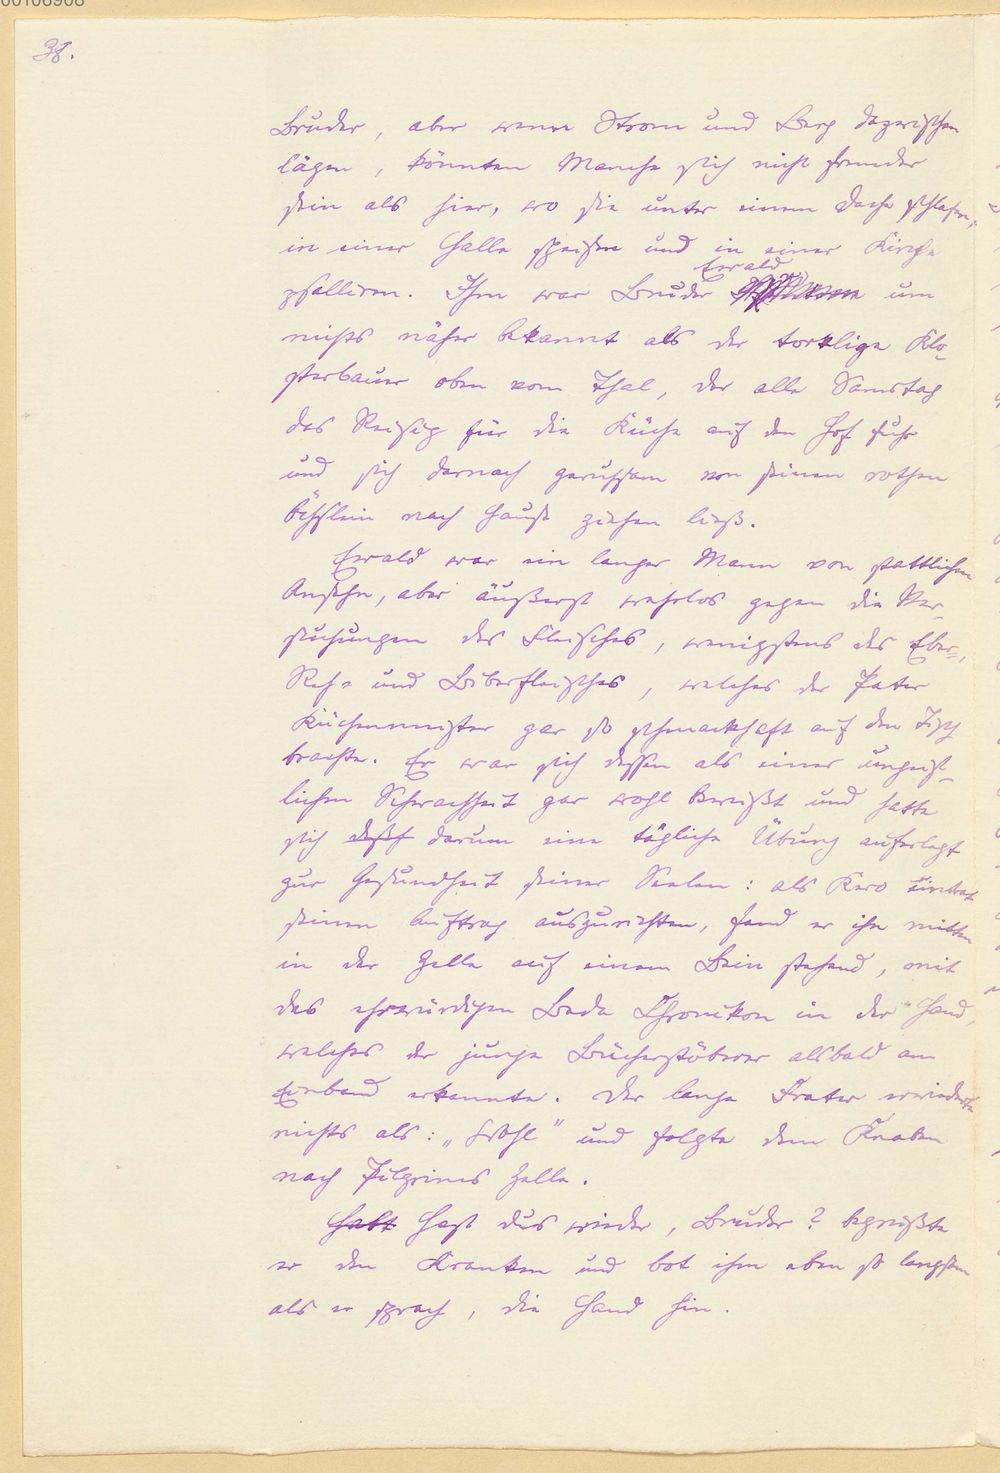 00106908
38.
Bruder, aber wenn Strom und Berg dazwischen
lägen, könnten Manche sich nicht fremder
sein als hier, wo sie unter einem Dache schlafen,
in einer Halle speisen und in einer Kirche
Ewald
psalliren. Ihm war Bruder um
nichts näher bekannt als der torklige Klo-
sterbauer oben vom Thal, der alle Samstag
das Reisig für die Küche auf den Hof fuhr
und sich darnach geruhsam von seinen rothen
Öchslein nach Hause ziehen ließ.
Ewald war ein langer Mann von stattlichem
Ansehn, aber äußerst wehrlos gegen die Ver-
suchungen des Fleisches, wenigstens des Eber-,
Reh- und Biberfleisches, welches der Pater
Küchenmeister gar so schmackhaft auf den Tisch
brachte. Er war sich dessen als einer ungeist-
lichen Schwachheit gar wohl bewußt und hatte
sich darum eine tägliche Übung auferlegt
zur Gesundheit seiner Seelen: als Kero eintrat
seinen Auftrag auszurichten, fand er ihn mitten
in der Zelle auf einem Bein stehend, mit
des ehrwürdigen Beda Chronikon in der Hand,
welches der junge Bücherstöberer alsbald am
Einband erkannte. Der lange Frater erwiederte
nichts als: „Wohl" und folgte dem Knaben
nach Pilgrims Zelle.
Habt Hast dus wieder, Bruder? begrüßte
er den Kranken und bot ihm eben so langsam
als er sprach, die Hand hin.